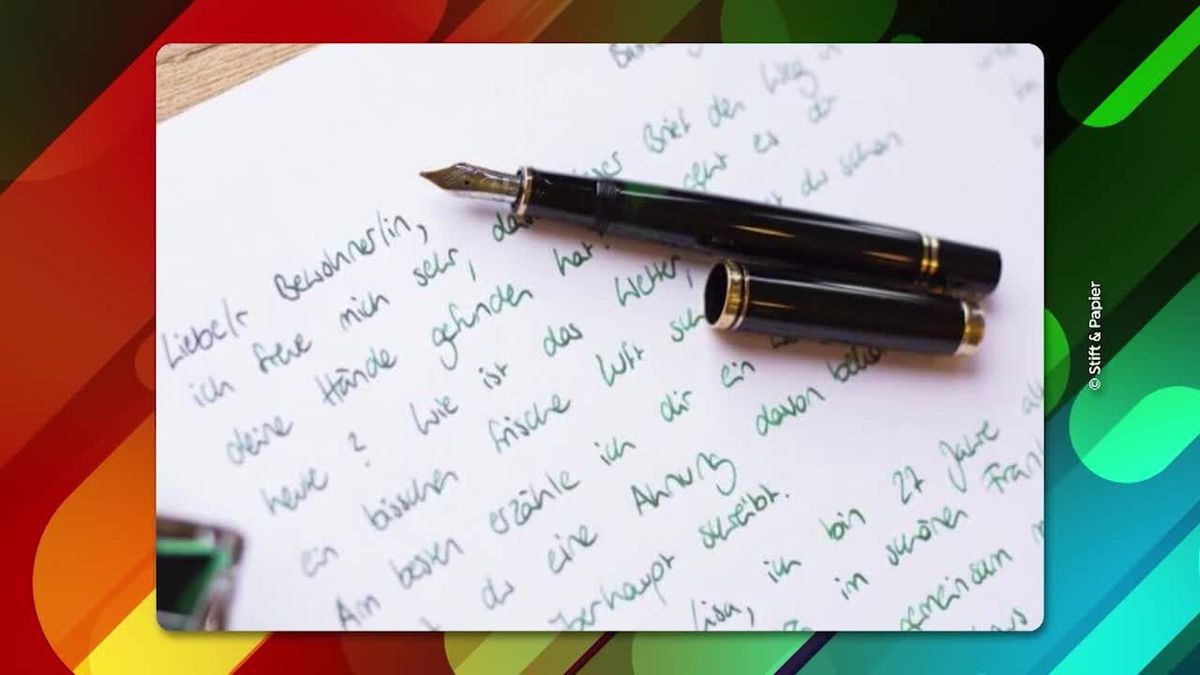 Liebe/r Bewohner/in,
ich freue mich sehr, dass Brief den Weg in
deine Hände gefunden hat. geht es dir
heute? Wie ist das Wetter, du schon
ein bisschen frische Luft
Am besten erzähle ich dir ein
du eine Ahnung davon
überhaupt schreibt.
Lisa, ich bin 27 Jahre
in schönen
gemeinsam
© Stift & Papier